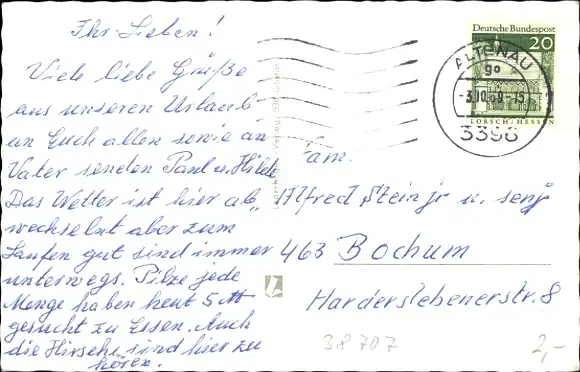 Ihr Lieben!
Viele liebe Grüße
aus unseren Urlaub
an Euch allen sowie an
Vater senden Paul u. Hilde
Das Wetter ist hier ab
wechselnt aber zum
Laufen gut sind immer
unterwegs. Pilze jede
Menge haben heut 5
gesucht zu Essen. Auch
die Hirsche sind hier zu
hören.
Deutsche Bundespost
20
LORSCH/HESSEN
ALTENAU
go
3396
Fam.
Alfred Stein jr u. senj
463 Bochum
Harderslebenerstr. 8
38707
2,-